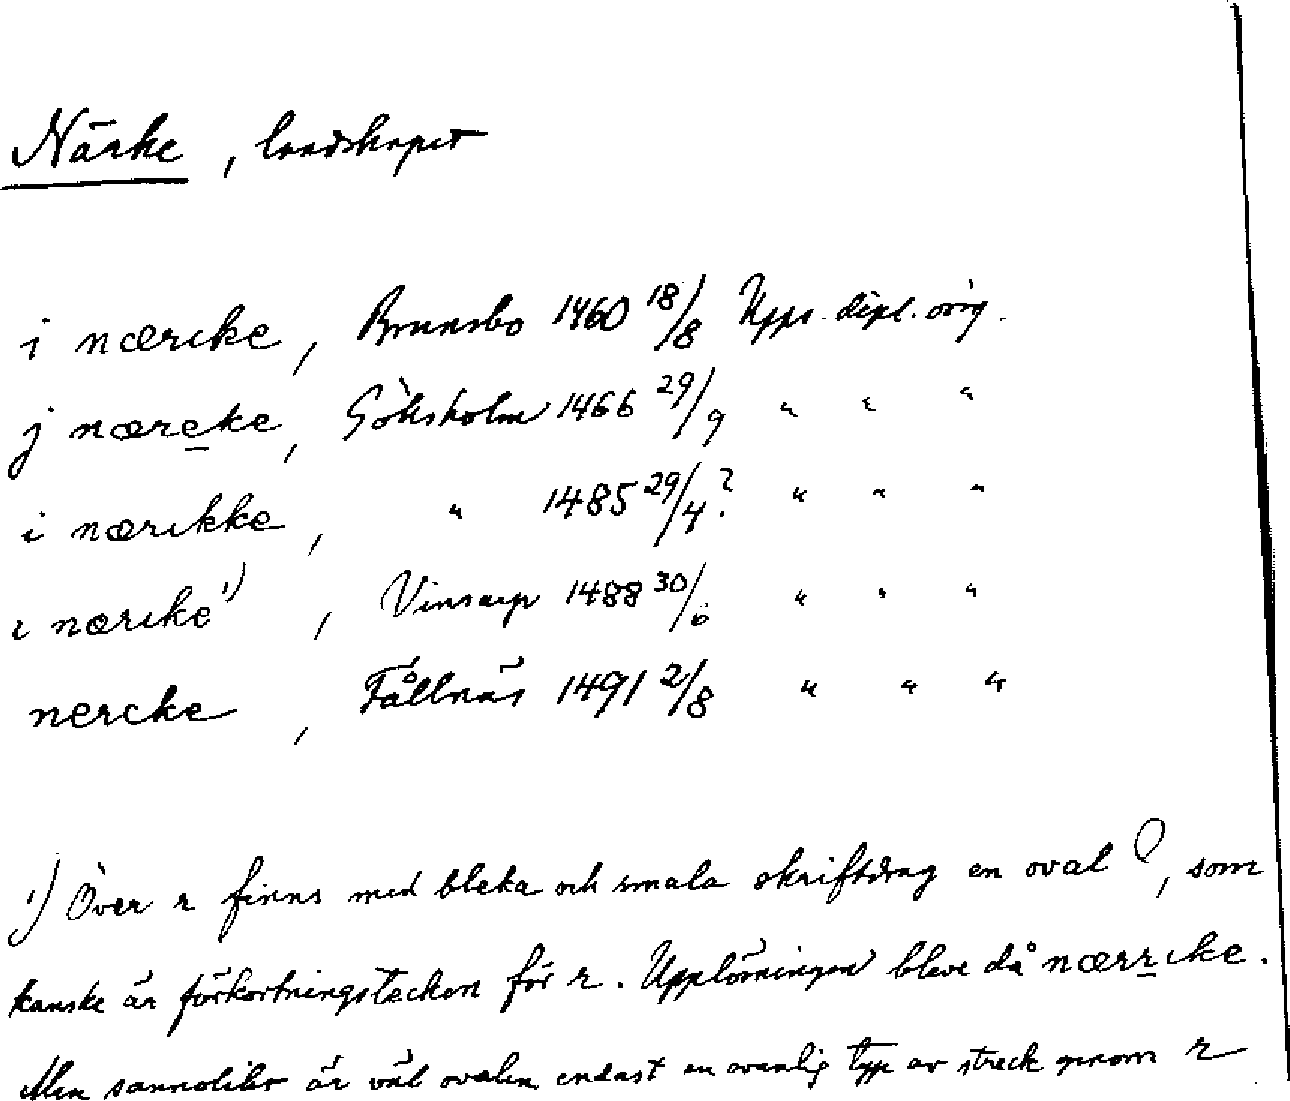 Närke, landskapet
i nærcke, Brunsbo 1460 18/8 Upps. dipl. orig.
j nærecke, Göksholm 1466 29/9 " " "
i nærikke, " 1485 29/4? " " "
i nærike¹⁾, Vinsarp 1488 30/6 " " "
nercke, Fållnäs 1491 2/8 " " "
¹⁾ Över r finns med bleka och smala skriftdrag en oval 0, som
kanske är förkortningstecken för r. Upplösningen bleve då nærrike.
Men sannolikt är väl ovalen endast en ovanlig typ av streck genom r